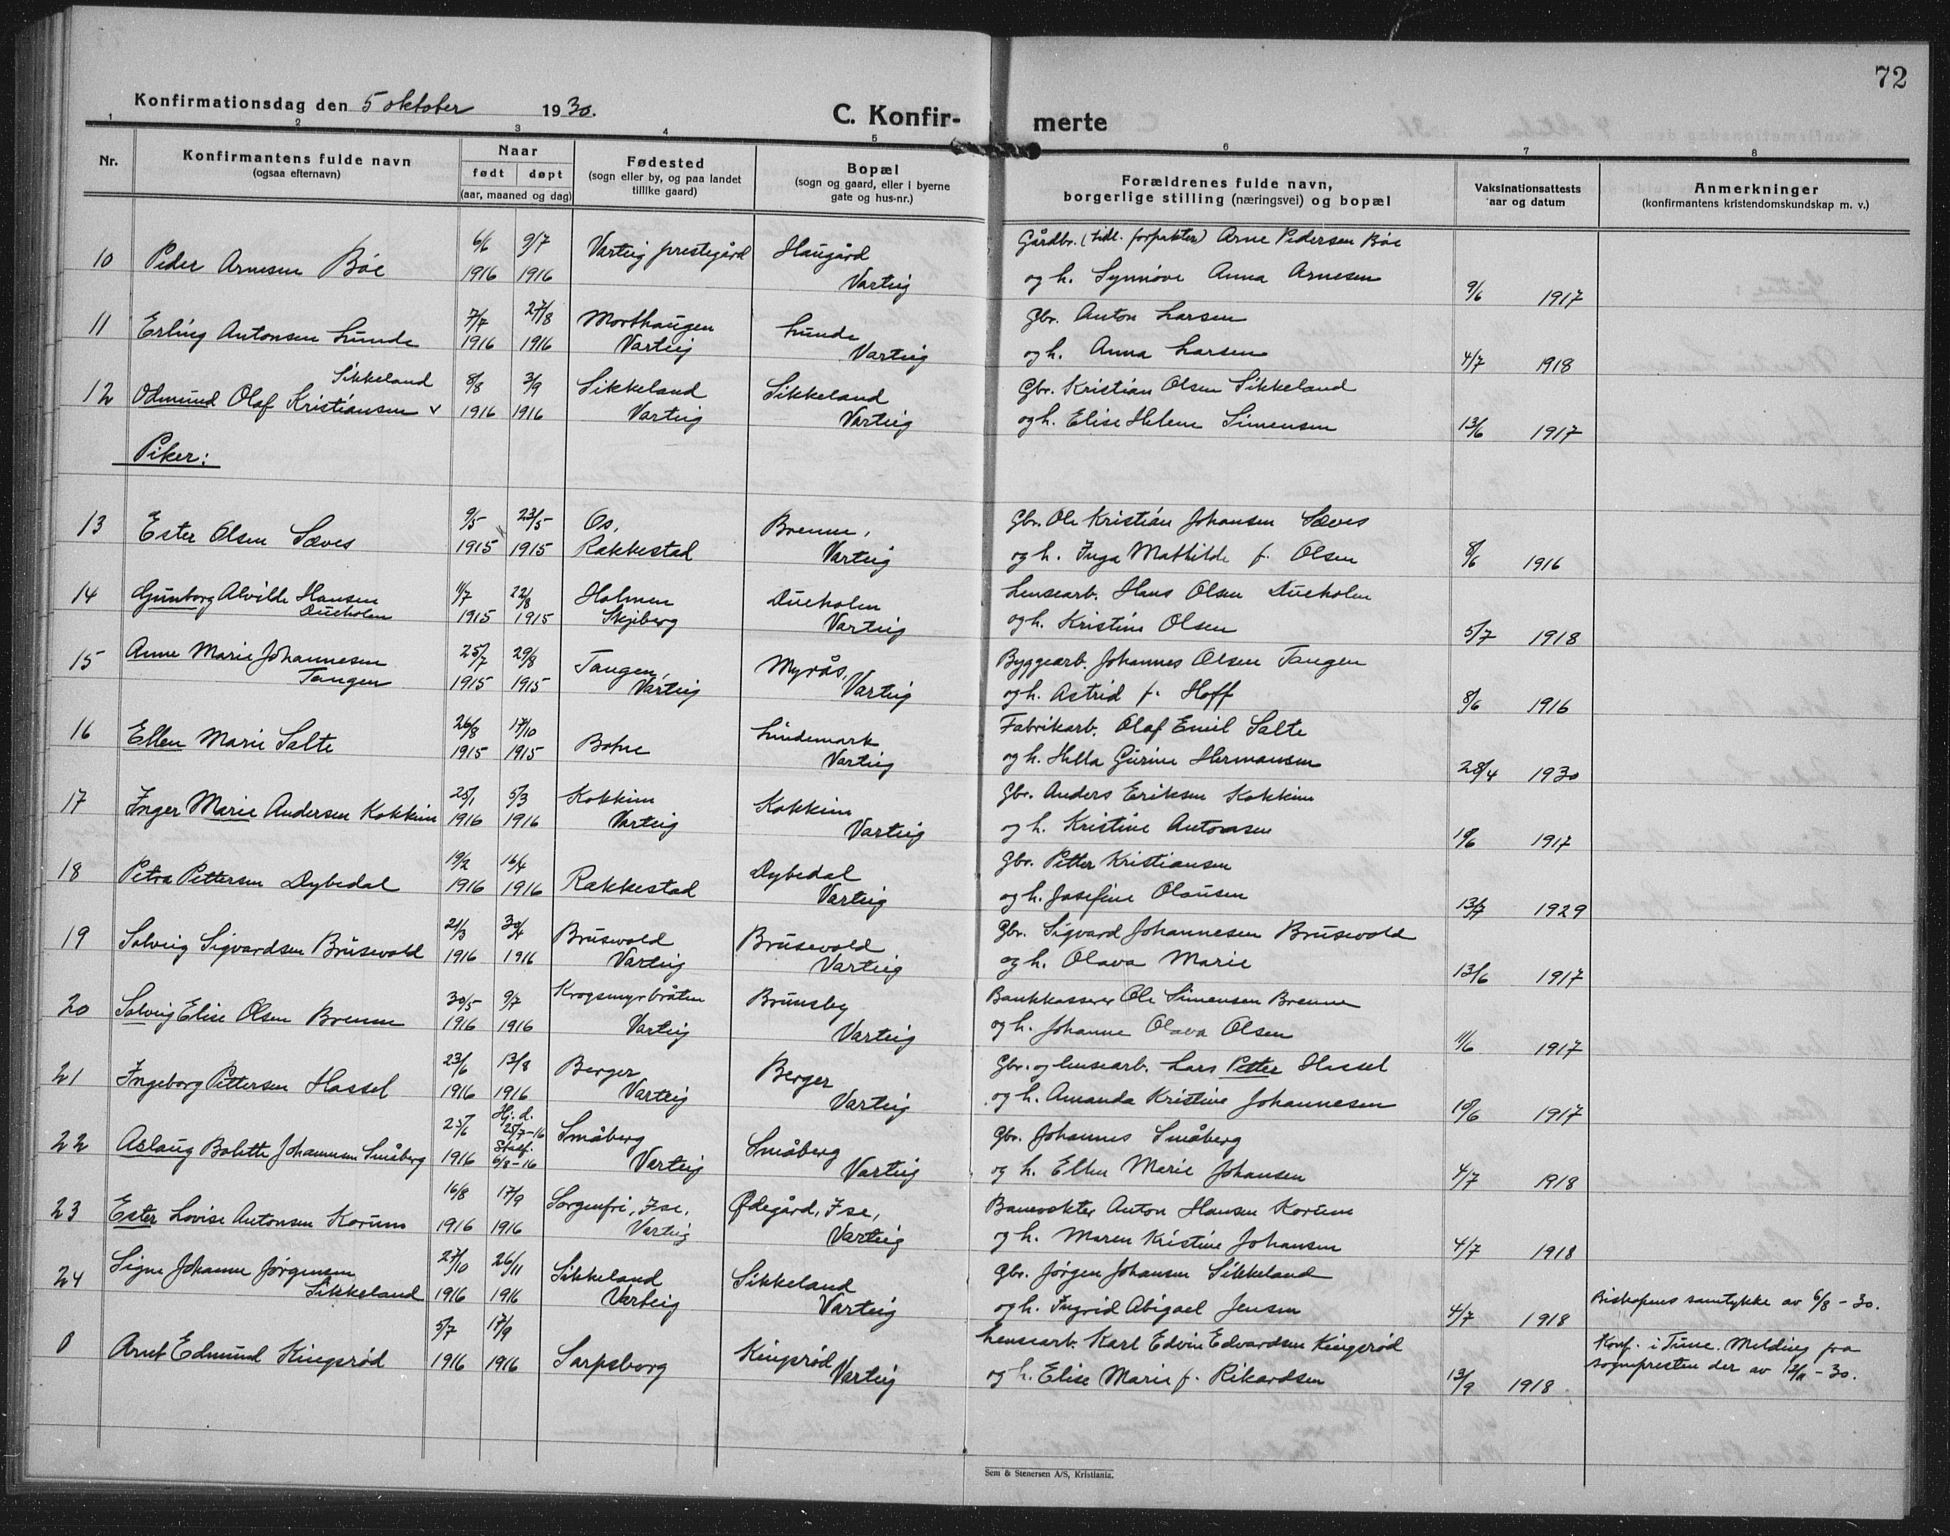 72
Konfirmationsdag den 5 oktober 1930.
C. Konfir- merte
1 2 3 4 5 6 7 8
Nr.
Konfirmantens fulde navn
(ogsaa efternavn)
Naar
født døpt
(aar, maaned og dag)
Fødested
(sogn eller by, og paa landet
tillike gaard)
Bopæl
(sogn og gaard, eller i byerne
gate og hus-nr.)
Forældrenes fulde navn,
borgerlige stilling (næringsvei) og bopæl
Vaksinationsattests
aar og datum
Anmerkninger
(konfirmantens kristendomskundskap m. v.)
6/6 9/7 Varteig prestegård Haugård Gårdbr. (tidl. forpakter) Arne Pedersen Bøe
10 Peder Arnesen Bøe 1916 1916 Varteig og h. Synnøve Anna Arnesen 9/6 1917
7/7 27/8 Morthaugen Lunde Gbr. Anton Larsen
11 Erling Antonsen Lunde 1916 1916 Varteig Varteig og h. Anna Larsen 4/7 1918
Sikkeland 8/8 3/9 Sikkeland Sikkeland Gbr. Kristian Olsen Sikkeland
12 Odmund Olaf Kristiansen v 1916 1916 Varteig Varteig og h. Elise Helene Simensen 13/6 1917
Piker:
9/5 23/5 Os, Brenne, Gbr. Ole Kristian Johansen Sæves
13 Ester Olsen Sæves 1915 1915 Rakkestad Varteig og h. Inga Mathilde f. Olsen 8/6 1916
14 Gunborg Alvilde Hansen 11/7 22/8 Holmen Dueholen Lensearb. Hans Olsen Dueholen
Dueholen 1915 1915 Skjeberg Varteig og h. Kristine Olsen 5/7 1918
15 Anne Marie Johannesen 25/7 29/8 Tangen, Myrås, Byggearb. Johannes Olsen Tangen
Tangen 1915 1915 Varteig Varteig og h. Astrid f. Hoff 8/6 1916
26/8 17/10 Lundemark Fabrikarb. Olaf Emil Salte
16 Ellen Marie Salte 1915 1915 Botne Varteig og h. Hella Gurine Hermansen 28/4 1930
25/1 5/3 Kokkim Kokkim Gbr. Anders Eriksen Kokkim
17 Inger Marie Andersen Kokkim 1916 1916 Varteig Varteig og h. Kristine Antonsen 19/6 1917
19/2 16/4 Dybedal Gbr. Petter Kristiansen
18 Petra Pettersen Dybedal 1916 1916 Rakkestad Varteig og h. Josefine Olausen 13/7 1929
21/3 30/4 Brusevold Brusevold Gbr. Sigvard Johannesen Brusevold
19 Solveig Sigvardsen Brusevold 1916 1916 Varteig Varteig og h. Olava Marie 13/6 1917
30/5 9/7 Krogsmyrbråten Brunsby Bankkasserer Ole Simensen Brenne
20 Solveig Elise Olsen Brenne 1916 1916 Varteig Varteig og h. Johanne Olava Olsen 11/6 1917
23/6 13/8 Berger Berger Gbr. og lensearb. Lars Petter Hassel
21 Ingeborg Pettersen Hassel 1916 1916 Varteig Varteig og h. Amanda Kristine Johannesen 19/6 1917
25/6 Hj. d. 25/7-16 Småberg Småberg Gbr. Johannes Småberg
22 Aslaug Bolette Johannesen Småberg 1916 Stadf. 6/8-16 Varteig Varteig og h. Ellen Marie Johansen 4/7 1918
16/8 17/9 Sorgenfri, Ise, Ødegård, Ise, Banevokter Anton Hansen Korum
23 Ester Lovise Antonsen Korum 1916 1916 Varteig Varteig og h. Maren Kristine Johansen 4/7 1918
Signe Johanne Jørgensen 27/10 26/11 Sikkeland Sikkeland Gbr. Jørgen Johansen Sikkeland
24 Sikkeland 1916 1916 Varteig Varteig og h. Ingrid Abigael Jensen 4/7 1918 Biskopens samtykke av 6/8-30.
5/7 17/9 Kingsrød Lensearb. Karl Edvin Edvardsen Kingsrød Konf. i Tune. Melding fra
0 Arnt Edmund Kingsrød 1916 1916 Sarpsborg Varteig og h. Elise Marie f. Rikardsen 13/9 1918 sognepresten der av 12/11-30.
Sem & Stenersen A/S, Kristiania.